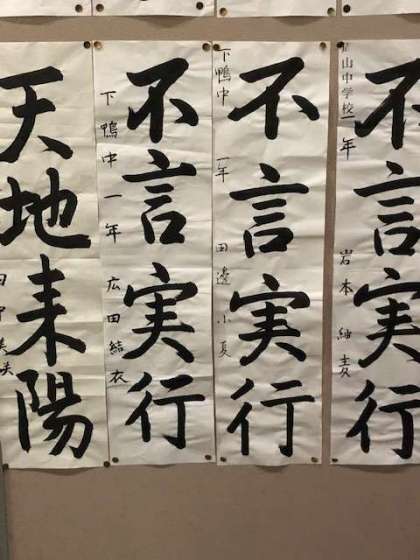 不言実行
山中学校一年 岩本
不言実行
下鴨中 一年 田邉小夏
不言実行
下鴨中一年 広田結衣
天地来陽